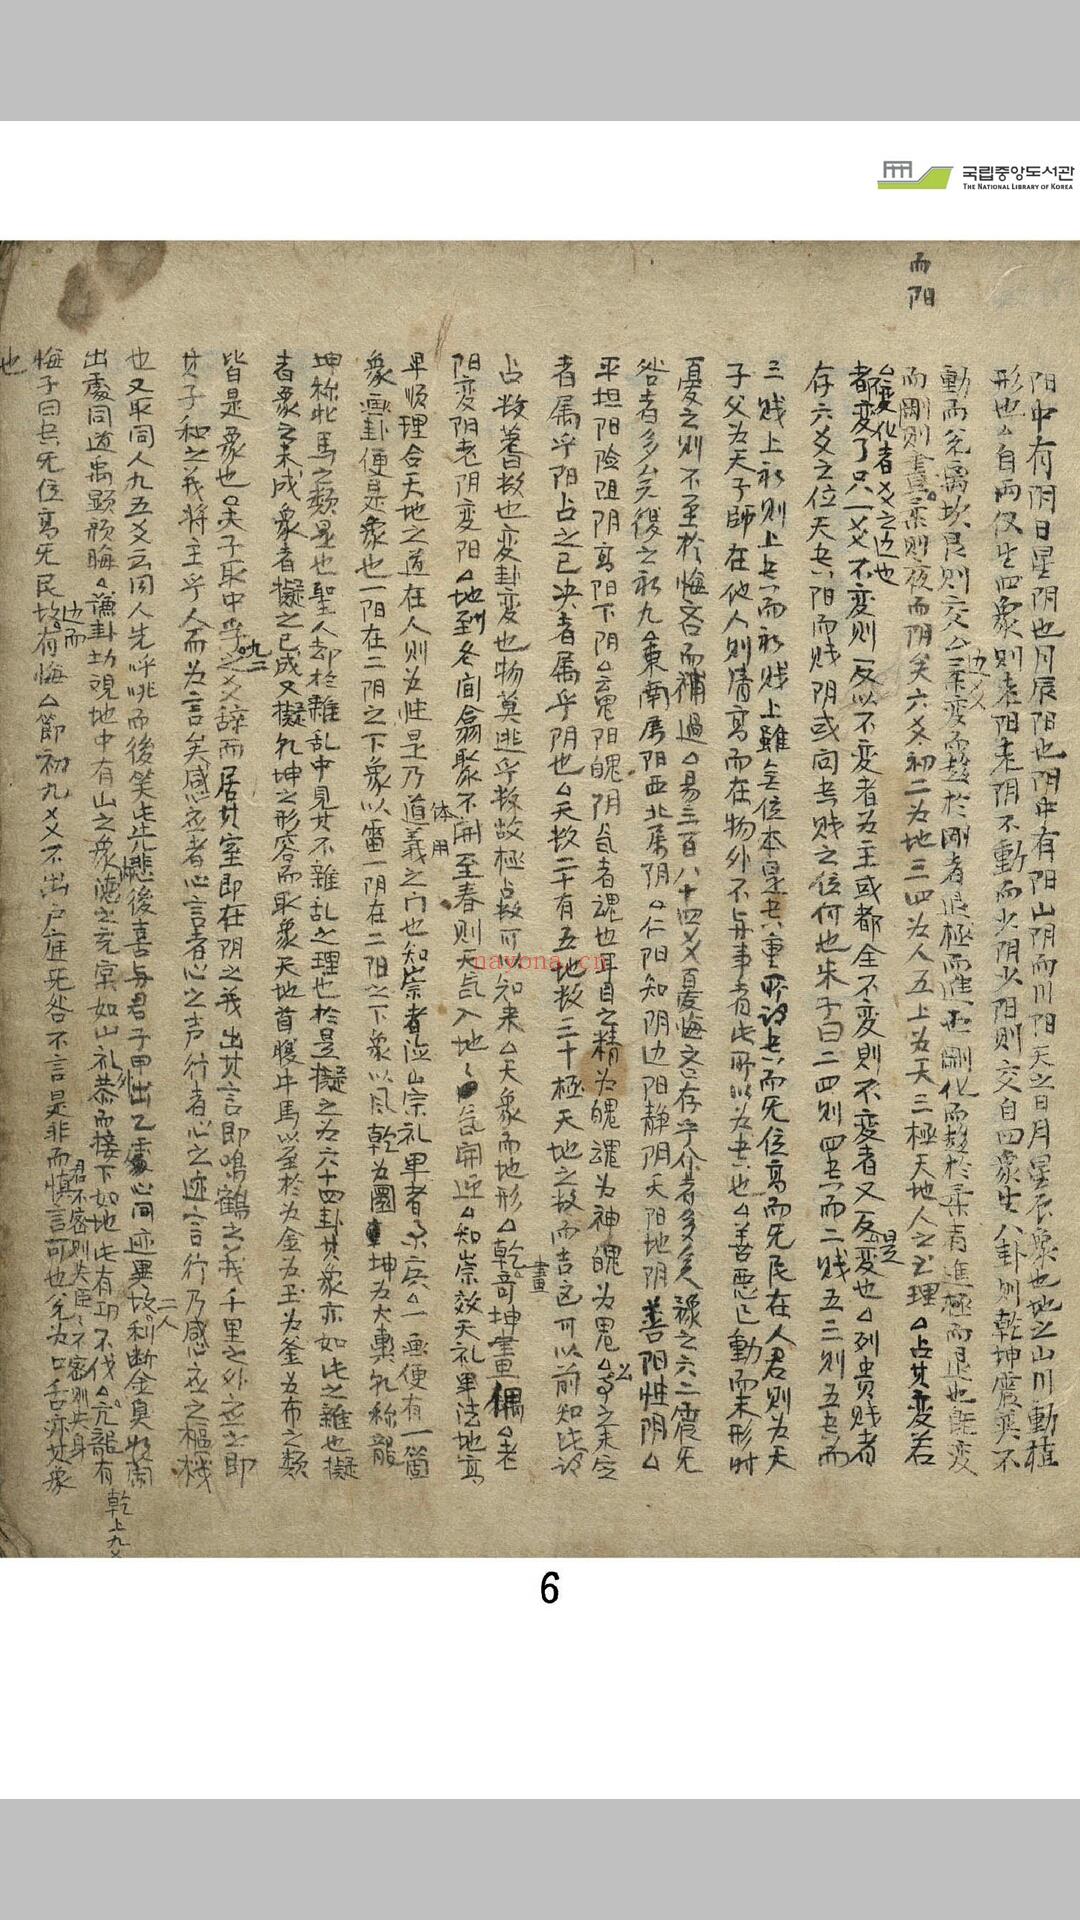 국립중앙도서관
THE NATIONAL LIBRARY OF KOREA
而阳
阳中有阴日星阴也月辰阳也阴中有阳山阴而川阳天之日月星辰象也地之山川動植
形也△自两仪生四象则老阳老阴不動而少阴少阳则交自四象生八卦则乾坤震巽不
動而兌离坎艮则交△柔变而趍於剛者退極而進也剛化而趍於柔者進極而退也旣变
而剛则晝柔则夜而阴矣六爻初二为地三四为人五上为天三極天地人之至理△占其变若
△变化者爻之边也
都变了只一爻不变则反以不变者为主或都全不变則不变者又反是变也△列贵贱者
存六爻之位天贵阳而贱阴或问贵贱之位何也朱子曰二四则四贵而二贱五三则五贵而
三贱上初则上贵而初贱上雖无位本是贵重所谓贵而无位高而无民在人君则为天
子父为天子師在他人则清高而在物外不与事者此所以为贵也△善恶已動而未形时
憂之则不至於悔吝而補過△易三百八十四爻憂悔之存乎介者多矣豫之六二震无
咎者多矣復之初九△東南属阳西北属阴△仁阳知阴边阳静阴天阳地阴善阳性阴△
平坦阳险阻阴高阳下阴△云鬼阳魄阴气者魂也耳目之精为魄魂为神魄为鬼△事之未定
者属乎阳占之已决者属乎阴也△天数二十有五地数三十極天地之数而吉凶可以前知此谓
占数蓍数也变卦变也物莫逃乎数故極占数可以知来△天象而地形△乾奇坤畫偶△老
畫
阳变阴老阴变阳△地到冬间翕聚不開至春则天气入地气開迎△知崇效天礼卑法地高
体用
卑順理合天地之道在人则为性是乃道義之门也知崇者
象画卦便是象也一阳在二阴之下象以雷一阴在二阳之下象以风乾为圜坤为大輿乾称龍
坤称牝馬之類是也聖人却於雜乱中見其不雜乱之理也於是擬之为六十四卦其象亦如此之雜也擬
者象之未成象者擬之已成又擬乾坤之形容而取象天地首腹牛馬以至於为金为玉为釜为布之類
皆是象也△夫子取中孚九二之爻辞而居其室即在阴之義出其言即鳴鶴之義千里之外应之即
其子和之義将主乎人而为言矣感应者心言者心之声行者心之迹言行乃感应之樞機
也又取同人九五爻云同人先呼咷而後笑先悲後喜与君子甲出乙處心同迹異故利断金臭如蘭
二人
出處同道禹顕顔晦△谦卦坊視地中有山之象德之充實如山礼恭而接下如地此有功不伐△亢龍有
乾上九爻
悔子曰贵无位高无民故有悔△節初九爻不出户庭无咎不言是非而慎言可也兌为口舌亦其象
君不密则失臣臣不密则失身
也
nayona.cn
6